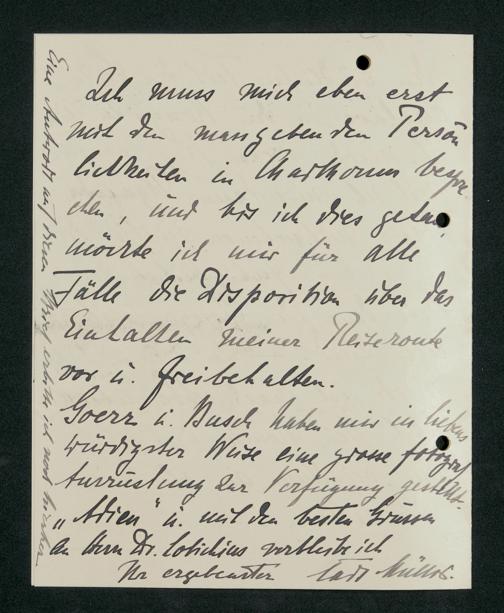 Ich muss mich eben erst
mit den massgebenden Persön
lichkeiten in Charthoum bespre
chen, und bis ich dies getan,
möchte ich mir für alle
Fälle die Disposition über das
Einhalten meiner Reiseroute
vor u. freibehalten.
Goerz u. Busch haben mir in liebens
würdigster Weise eine grosse fotograf
Ausrüstung zur Verfügung gestellt.
„Adieu" u. mit den besten Grüssen
an Herrn Dr. Lobichius verbleibe ich
Ihr ergebenster Müller.
Eine Antwort auf diesen Brief erbitte ich noch